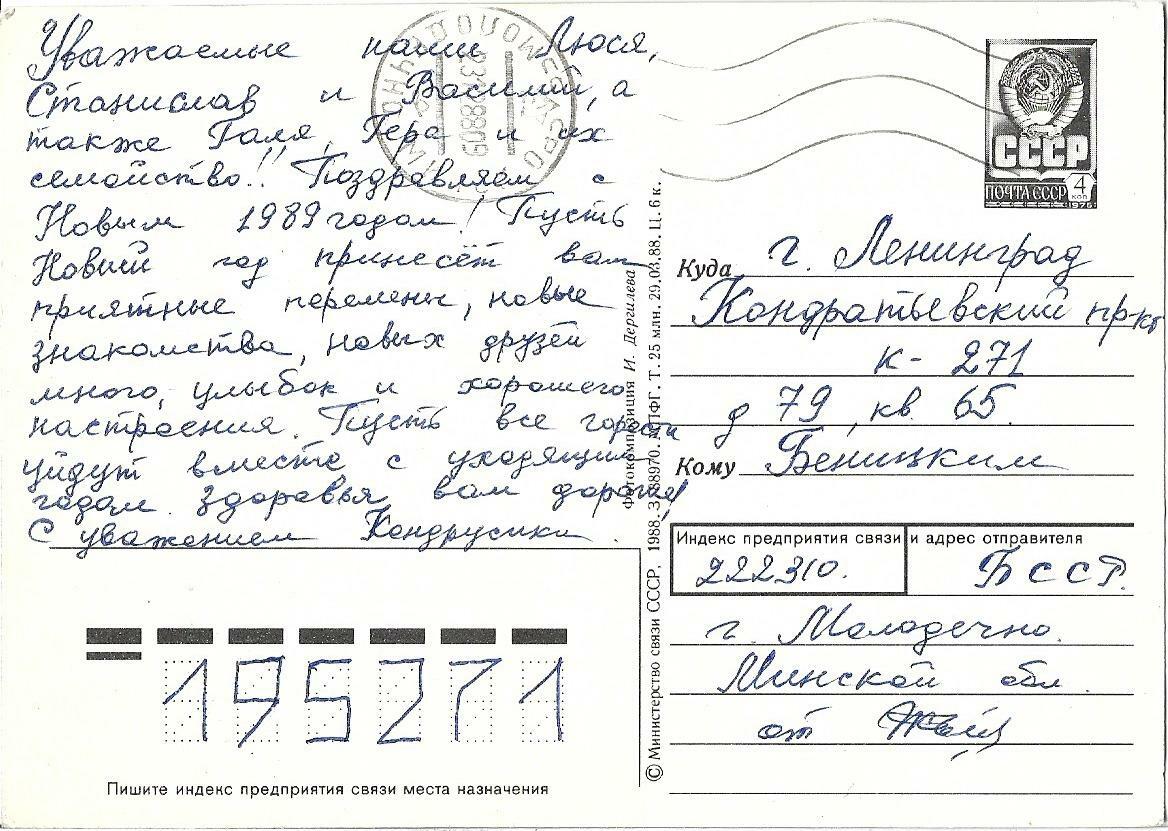 Уважаемые наши Люся,
Станислав и Василий, а
также Галя, Гера и их
семейство!! Поздравляем с
Новым 1989 годом! Пусть
Новый год принесёт вам
приятные перемены, новые
знакомства, новых друзей
много, улыбок и хорошего
настроения. Пусть все горести
уйдут вместе с уходящим
годом. Здоровья вам дорогие!
С уважением Кондрусики.
СССР
ПОЧТА СССР
4
КОП
1976
Куда г. Ленинград
Кондратьевский пр-кт
К-271
д 79, кв. 65.
Кому Беницким
Индекс предприятия связи и адрес отправителя
222310. БССР.
г. Молодечно.
Минской обл.
от
195271
Пишите индекс предприятия связи места назначения
© Министерство связи СССР. 1988. З. 88970. ППФГ. Т. 25 млн. 29.03.88. Ц. 6 к.
Фотокомпозиция И. Дергилева